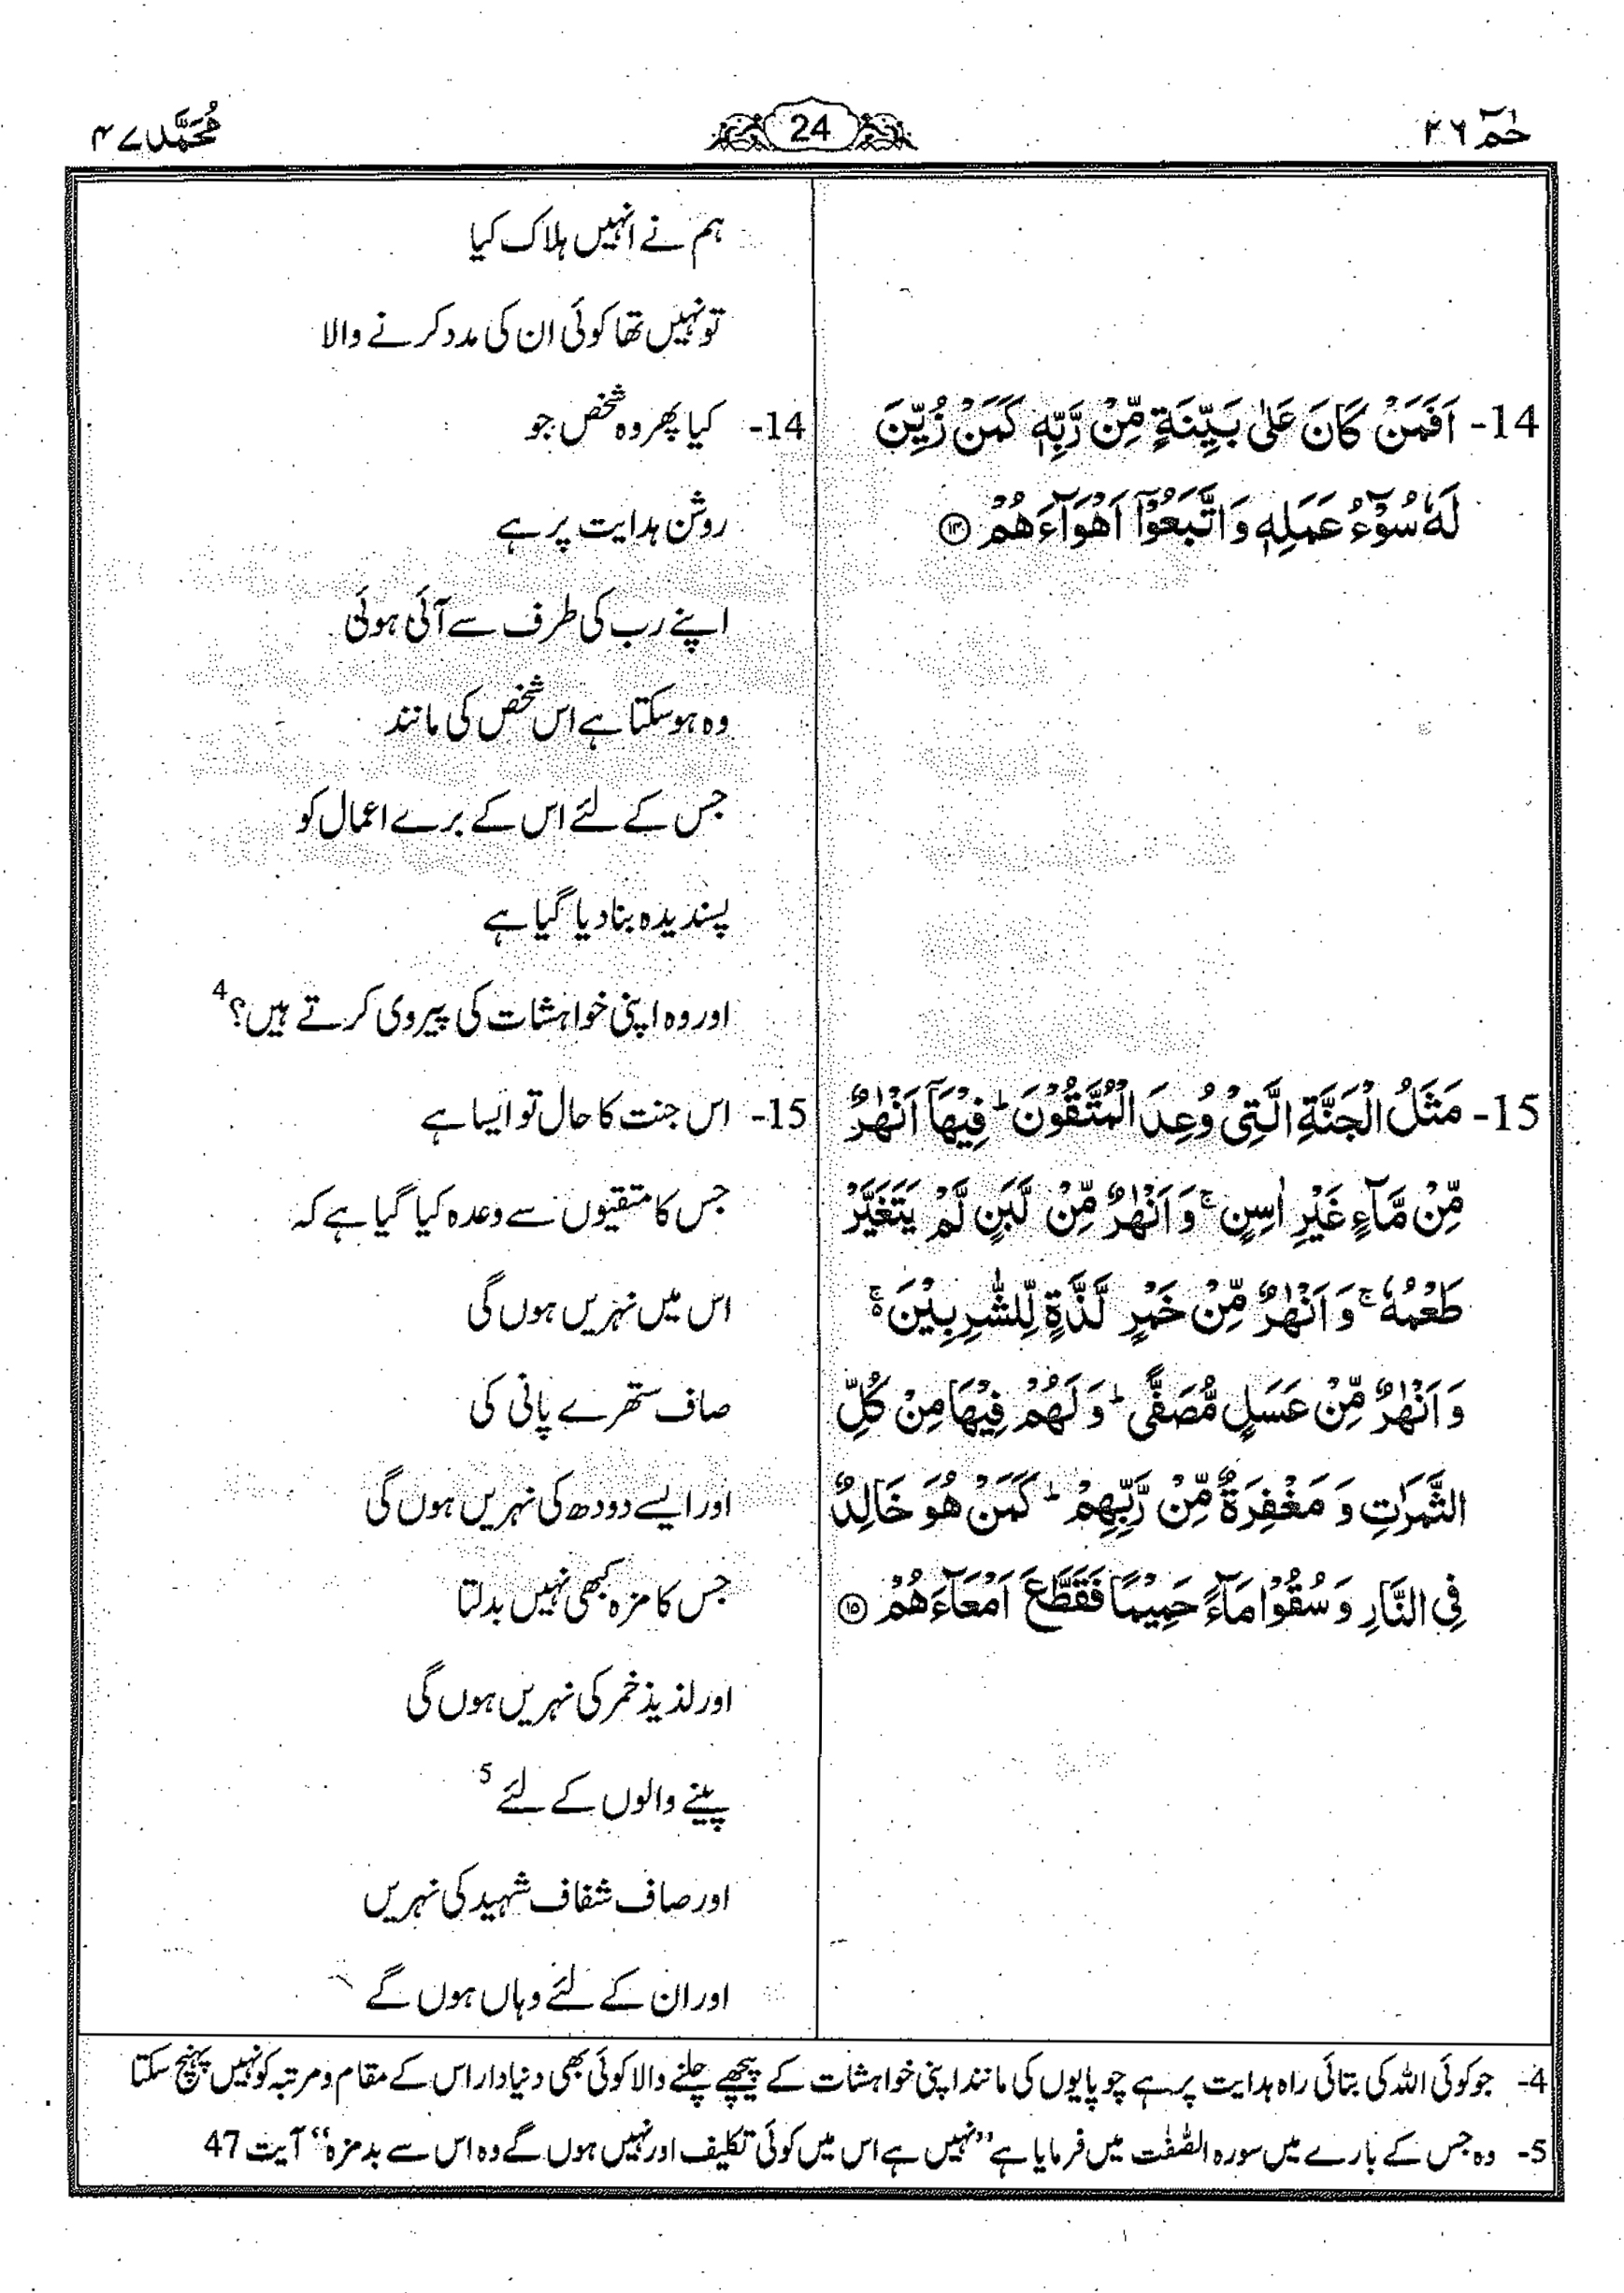 حٰمٓ ۲۶
24
مُحَمَّد ۴۷
14- اَفَمَنْ كَانَ عَلٰى بَيِّنَةٍ مِّنْ رَّبِّهٖ كَمَنْ زُيِّنَ
لَهٗ سُوْٓءُ عَمَلِهٖ وَاتَّبَعُوْٓا اَهْوَآءَهُمْ ۝۱۴
15- مَثَلُ الْجَنَّةِ الَّتِيْ وُعِدَ الْمُتَّقُوْنَ ؕ فِيْهَآ اَنْهٰرٌ
مِّنْ مَّآءٍ غَيْرِ اٰسِنٍ ۚ وَ اَنْهٰرٌ مِّنْ لَّبَنٍ لَّمْ يَتَغَيَّرْ
طَعْمُهٗ ۚ وَ اَنْهٰرٌ مِّنْ خَمْرٍ لَّذَّةٍ لِّلشّٰرِبِيْنَ ۬ۚ
وَ اَنْهٰرٌ مِّنْ عَسَلٍ مُّصَفًّى ؕ وَ لَهُمْ فِيْهَا مِنْ كُلِّ
الثَّمَرٰتِ وَ مَغْفِرَةٌ مِّنْ رَّبِّهِمْ ؕ كَمَنْ هُوَ خَالِدٌ
فِي النَّارِ وَ سُقُوْا مَآءً حَمِيْمًا فَقَطَّعَ اَمْعَآءَهُمْ ۝۱۵
ہم نے انہیں ہلاک کیا
تو نہیں تھا کوئی ان کی مدد کرنے والا
14- کیا پھر وہ شخص جو
روشن ہدایت پر ہے
اپنے رب کی طرف سے آئی ہوئی
وہ ہو سکتا ہے اس شخص کی مانند
جس کے لئے اس کے برے اعمال کو
پسندیدہ بنا دیا گیا ہے
اور وہ اپنی خواہشات کی پیروی کرتے ہیں؟ 4
15- اس جنت کا حال تو ایسا ہے
جس کا متقیوں سے وعدہ کیا گیا ہے کہ
اس میں نہریں ہوں گی
صاف ستھرے پانی کی
اور ایسے دودھ کی نہریں ہوں گی
جس کا مزہ کبھی نہیں بدلتا
اور لذیذ خمر کی نہریں ہوں گی
پینے والوں کے لئے 5
اور صاف شفاف شہید کی نہریں
اور ان کے لئے وہاں ہوں گے
4- جو کوئی اللہ کی بتائی راہ ہدایت پر ہے چوپایوں کی مانند اپنی خواہشات کے پیچھے چلنے والا کوئی بھی دنیا دار اس کے مقام و مرتبہ کو نہیں پہنچ سکتا
5- وہ جس کے بارے میں سورہ الصّٰفّٰت میں فرمایا ہے ’’نہیں ہے اس میں کوئی تکلیف اور نہیں ہوں گے وہ اس سے بدمزہ‘‘ آیت 47